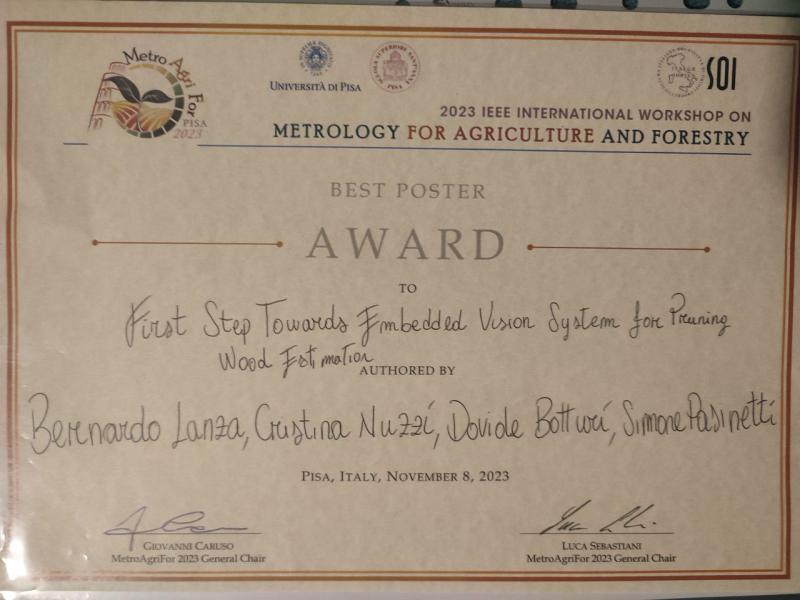 Metro Agri For
PISA
2023
UNIVERSITÀ DI PISA
SOI
2023 IEEE INTERNATIONAL WORKSHOP ON
METROLOGY FOR AGRICULTURE AND FORESTRY
BEST POSTER
AWARD
TO
First Step Towards Embedded Vision System for Pruning
Wood Estimation
AUTHORED BY
Bernardo Lanza, Cristina Nuzzi, Davide Botturi, Simone Pasinetti
PISA, ITALY, NOVEMBER 8, 2023
GIOVANNI CARUSO
MetroAgriFor 2023 General Chair
LUCA SEBASTIANI
MetroAgriFor 2023 General Chair